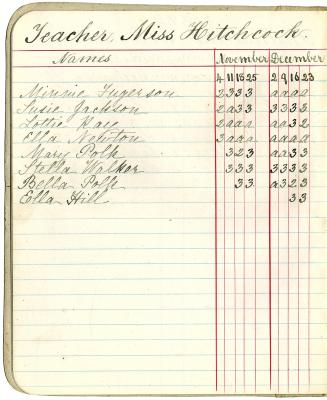 Teacher, Miss Hitchcock.
Names November December
4 11 18 25 2 9 16 23
Minnie Ingerson 2 3 3 3 a a a a
Susie Jackson 2 a 3 3 3 3 3 3
Lottie Kay 2 a a a a a 3 2
Ella Newton 3 a a a a a a a
Mary Polk 3 2 3 a a 3 3
Stella Walker 3 3 3 3 3 3 3
Bella Polk 3 3 a 3 2 3
Ella Hill 3 3